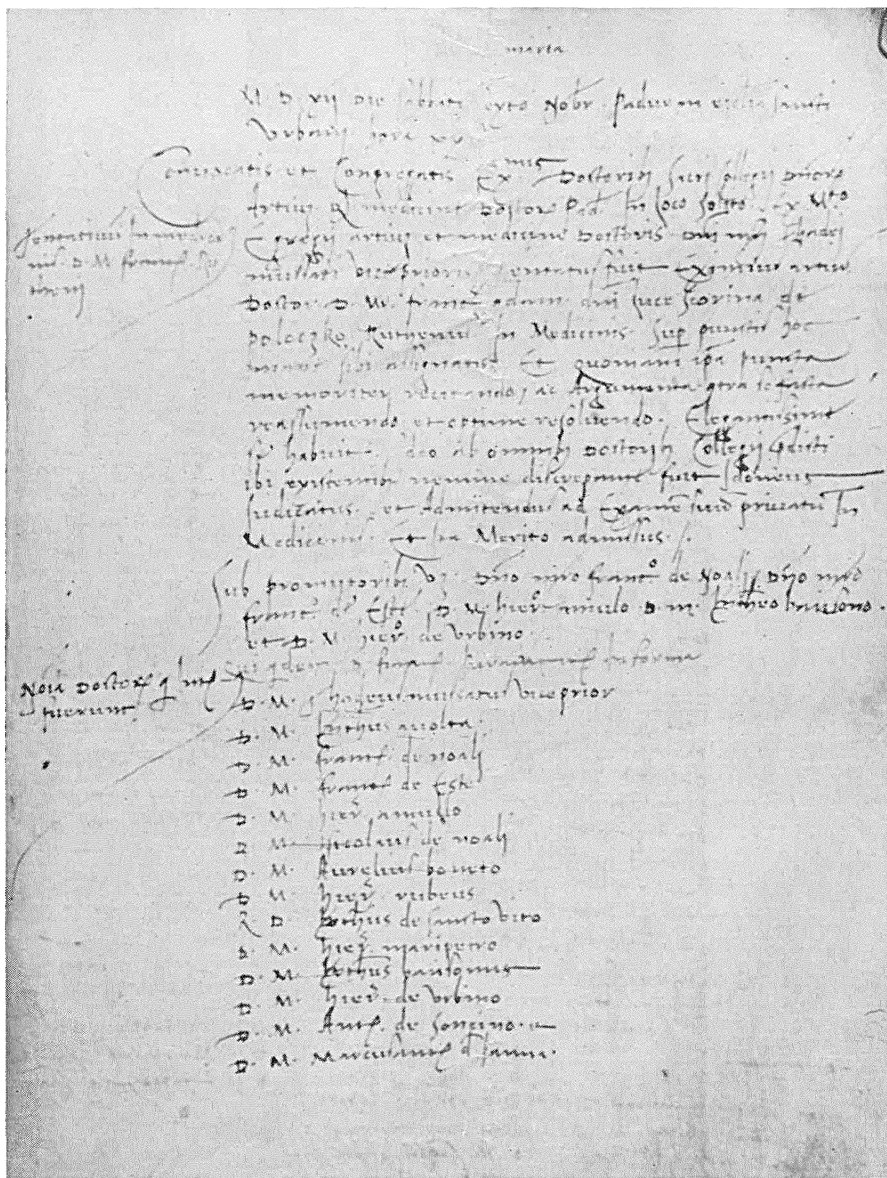 maria
M. D. xij Die sabbati sexto Nobr. Padue in ecclia sancti
Urbani hora
Convocatis et Congregatis Ex.mis Doctoribȝ sacri collegij dnorȝ
Artiuȝ et medicine Doctorȝ Pad. In loco solito. ex M.to
Egregij artiuȝ et medicine Doctoris Dni mgri Thadei
mussati vicepriorȝ tentatus fuit Eximius artiuȝ
Doctor. D. M. francȝ qdam dni luce scorina de
poloczko Ruthenus In Medicinis. Sup punctis hoc
mane sibi assignatis. Et quoniam ipa puncta
memoriter recitando, ac Argumenta contra se facta
reassumendo et optime resolvendo. Elegantissime
se habuit. ideo ab omnibȝ Doctoribȝ Collegij predicti
ibi existentibȝ nemine discrepante fuit Idoneus
Iudicatus. et Admittendus ad Examen suuȝ privatuȝ In
Medicinis. Et ita Merito admissus.
Sub promotoribȝ Dno mro Franc.o de Noali, Dno mro
franc. de Este. D. M. hier.o amulo D. M. Bartheo barisono.
et D. M. hier.o de Urbino
Tentativuȝ In medicinis
D. M. francȝ Ru
theni
Noia Doctorȝ q Inter
fuerunt
D. M. Thadeus mussatus vice prior
D. M.
D. M. francȝ de noali
D. M. francȝ de Este
D. M. hierȝ amullo
D. M. Nicolaus de noali
D. M. Aurelius boneto
D. M. hierȝ rubeus
R. D. Btheus de sancto vito
D. M. hierȝ maripetro
D. M. Btheus barisonus
D. M. hierȝ de Urbino
D. M. Antȝ de soncino
D. M. Marcusantȝ de Janua.